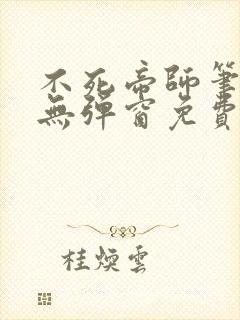 不死帝師筆
無彈窗免費
桂煥雲